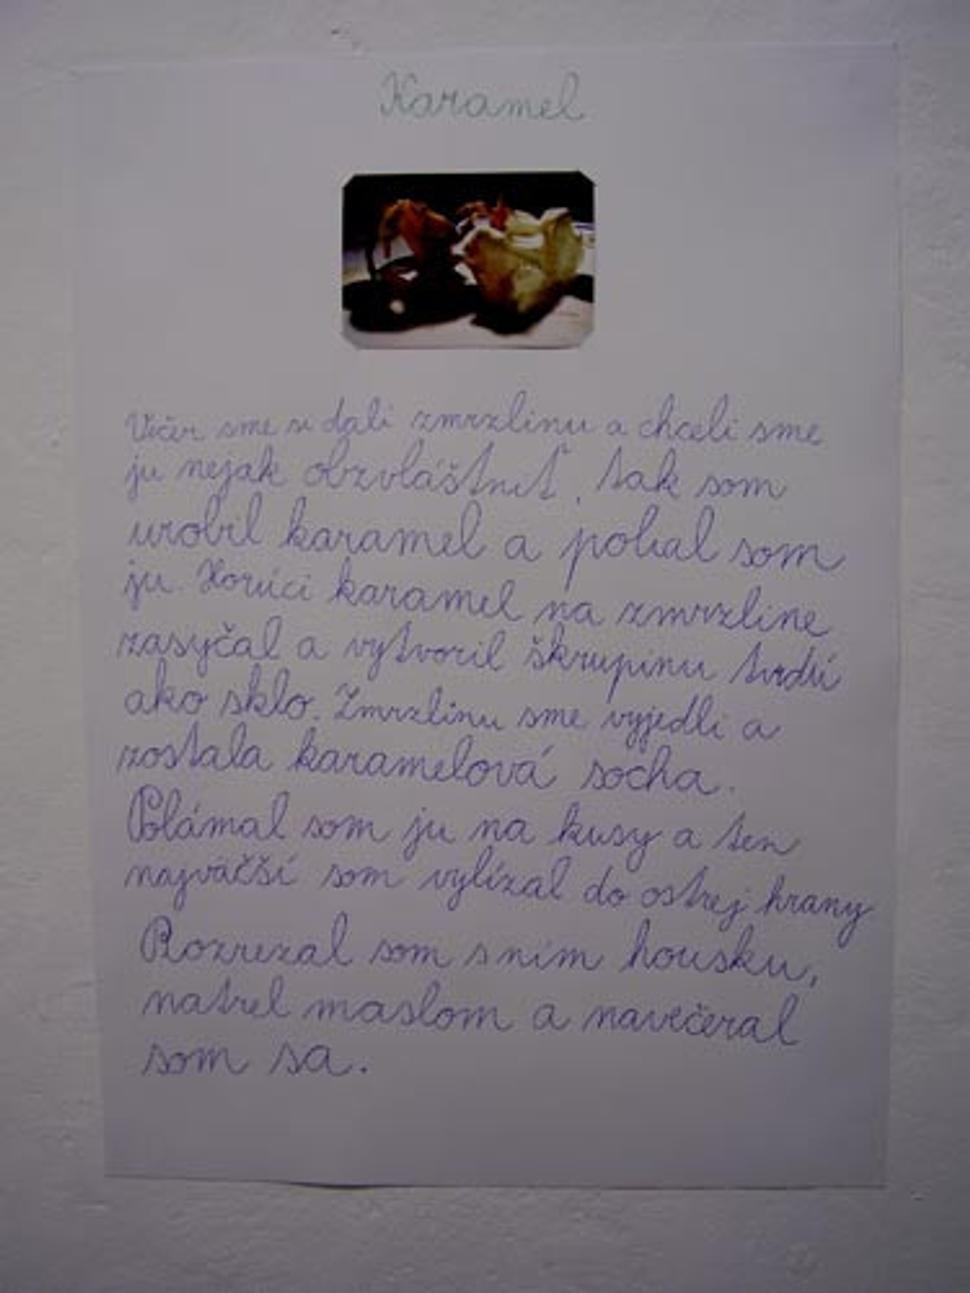 Karamel
Večer sme si dali zmrzlinu a chceli sme
ju nejak obzvláštniť, tak som
urobil karamel a polial som
ju. Horúci karamel na zmrzline
zasyčal a vytvoril škrupinu tvrdú
ako sklo. Zmrzlinu sme vyjedli a
zostala karamelová socha.
Polámal som ju na kusy a ten
najväčší som vylízal do ostrej hrany
Rozrezal som s ním housku,
natrel maslom a navečeral
som sa.